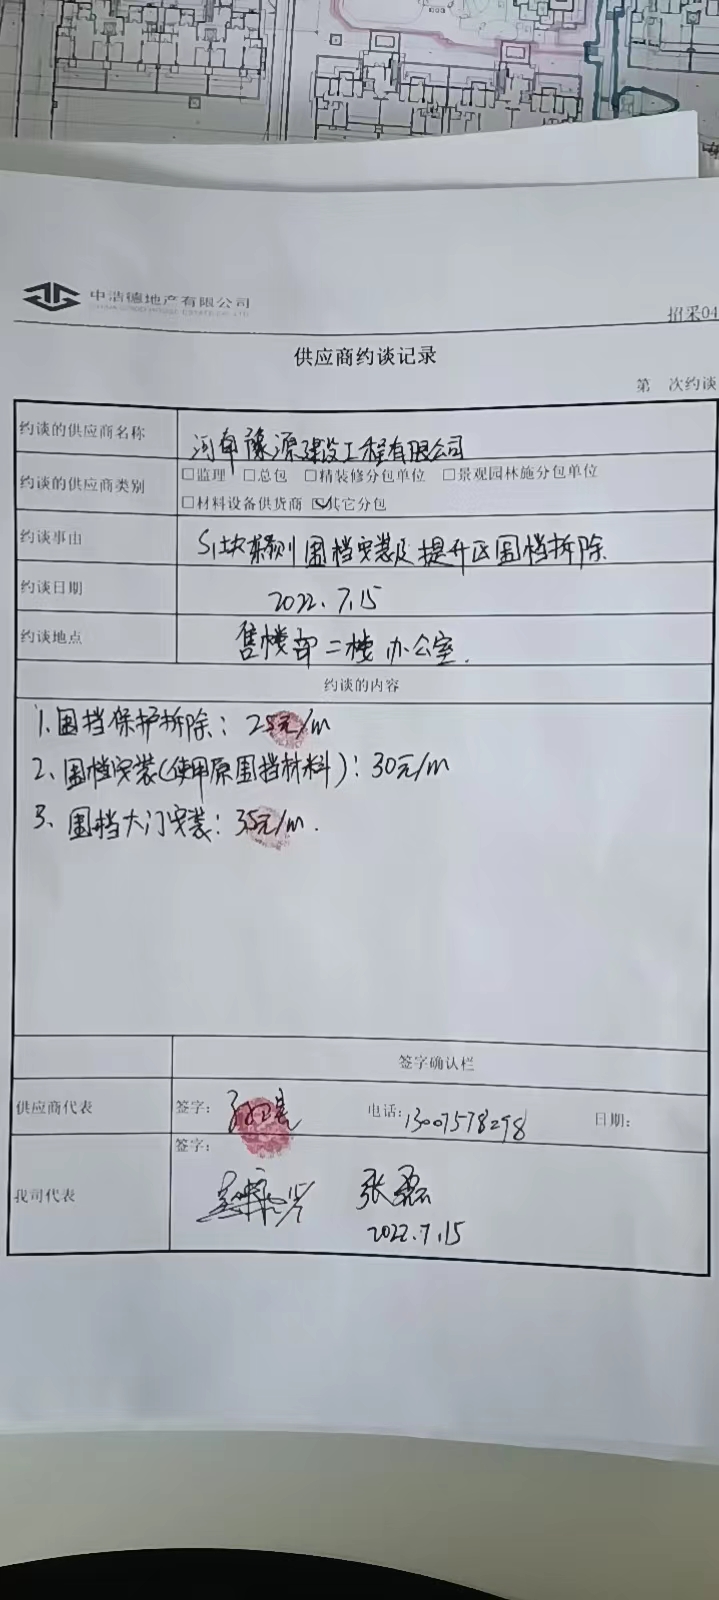 中浩德地产有限公司
招采04
供应商约谈记录
第 次约谈
约谈的供应商名称 河南豫源建设工程有限公司
约谈的供应商类别 □监理 □总包 □精装修分包单位 □景观园林施分包单位
□材料设备供货商 ☑其它分包
约谈事由 S1块东侧围档安装及提升区围档拆除
约谈日期 2022.7.15
约谈地点 售楼部二楼办公室.
约谈的内容
1.围挡保护拆除：25元/m
2、围档安装(使用原围挡材料)：30元/m
3、围档大门安装：35元/m.
签字确认栏
供应商代表 签字： 电话：13007578298 日期：
签字：
我司代表 张磊
2022.7.15